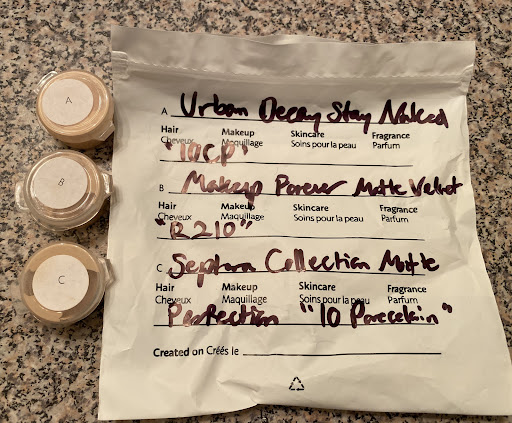 A
B
C
A Urban Decay Stay Naked
Hair Makeup Skincare Fragrance
Cheveux Maquillage Soins pour la peau Parfum
"10CP"
B Makeup Forever Matte Velvet
Hair Makeup Skincare Fragrance
Cheveux Maquillage Soins pour la peau Parfum
"R210"
C Sephora Collection Matte
Hair Makeup Skincare Fragrance
Cheveux Maquillage Soins pour la peau Parfum
Perfection "10 Porcelain"
Created on Créés le